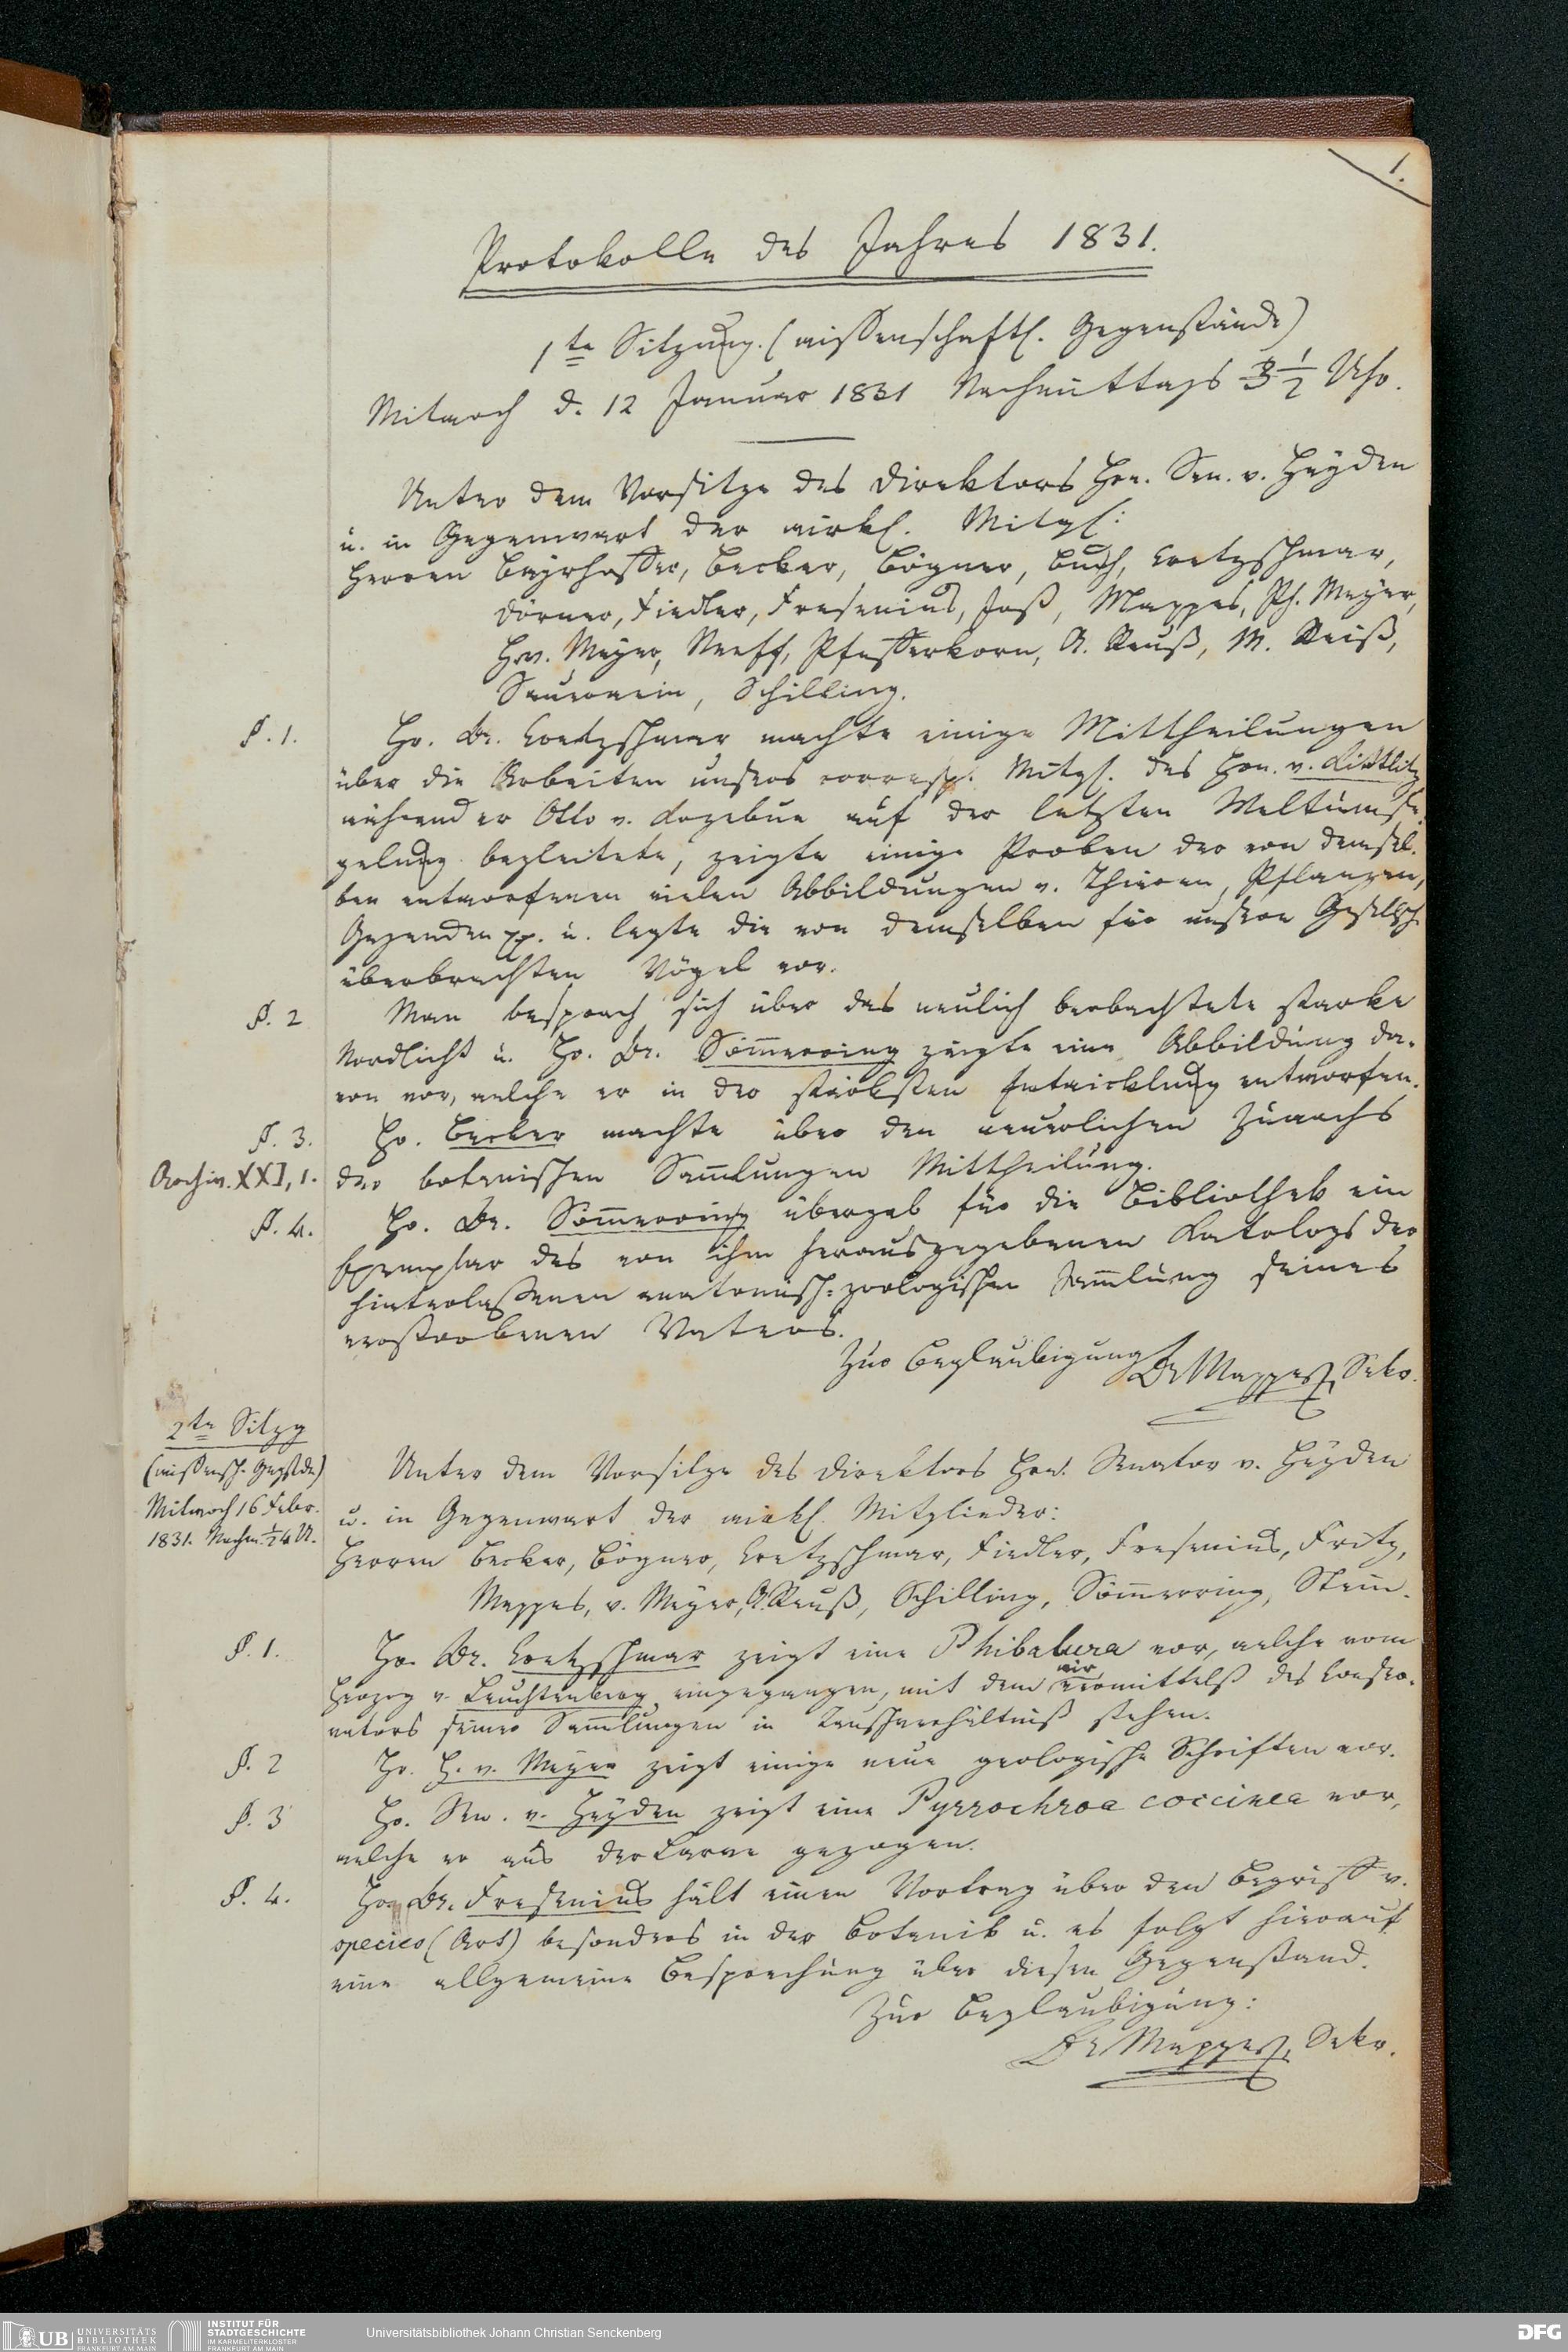 1.
Protokolle des Jahres 1831.
1te Sitzung. (wissenschaftl. Gegenstände)
Mitwoch d. 12 Januar 1831 Nachmittags 3 1/2 Uhr.
Unter dem Vorsitze des Direktors Hrn. Sen. v. Heyden
u. in Gegenwart der wirkl. Mitgl:
Herren Bayrhoffer, Becker, Bögner, Buch, Cretzschmar,
Dörner, Fiedler, Fresenius, Joß, Mappes, Ph. Meyer,
Hrm. Meyer, Neeff, Pfefferkorn, A. Reuß, M. Reiß,
Sauerwein, Schilling.
§. 1. Hr. Dr. Cretzschmar machte einige Mittheilungen
über die Arbeiten unsers corresp. Mitgl. des Hrn. v. Kittlitz
während er Otto v. Kozebue auf der letzten Weltumse-
gelung begleitete, zeigte einige Proben der von demsel-
ben entworfenen vielen Abbildungen v. Thieren, Pflanzen,
Gegenden pp. u. legte die von demselben für unsere Gesellsch.
überbrachten Vögel vor.
§. 2 Man besprach sich über das neulich beobachtete starke
Nordlicht u. Hr. Dr. Sömmerring zeigte eine Abbildung da-
von vor, welche er in der stärksten Entwicklung entworfen.
§. 3. Hr. Becker machte über den neuerlichen Zuwachs
Archiv. XXI, 1. der botanischen Sammlungen Mittheilung.
§. 4. Hr. Dr. Sömmerring übergab für die Bibliothek ein
Exemplar des von ihm herausgegebenen Katologs der
hinterlassenen anatomisch-zoologischen Sammlung seines
verstorbenen Vaters.
Zur Beglaubigung Dr Mappes, Sekr.
2te Sitzg
(wissensch. Gegstde)
Mitwoch 16 Febr.
1831. Nachm. 1/2 4 U.
Unter dem Vorsitze des Direktors Hrn. Senator v. Heyden
u. in Gegenwart der wirkl. Mitglieder:
Herren Becker, Bögner, Cretzschmar, Fiedler, Fresenius, Fritz,
Mappes, v. Meyer, A. Reuß, Schilling, Sömmerring, Stein.
§. 1. Hr. Dr. Cretzschmar zeigt eine Phibalura vor, welche vom
Herzog v. Leuchtenberg eingegangen, mit dem wir vermittelst des Conser-
vators seiner Sammlungen in Tauschverhältniß stehen.
§. 2 Hr. H. v. Meyer zeigt einige neue geologische Schriften vor.
§. 3 Hr. Sen. v. Heyden zeigt eine Pyrrochroa coccinea vor,
welche er aus der Larve gezogen.
§. 4. Hr. Dr. Fresenius hält einen Vortrag über den Begriff v.
species (Art) besonders in der Botanik u. es folgt hierauf
eine allgemeine Besprechung über diesen Gegenstand.
Zur Beglaubigung:
Dr Mappes, Sekr.
UB UNIVERSITÄTS BIBLIOTHEK FRANKFURT AM MAIN
INSTITUT FÜR STADTGESCHICHTE IM KARMELITERKLOSTER FRANKFURT AM MAIN
Universitätsbibliothek Johann Christian Senckenberg
DFG